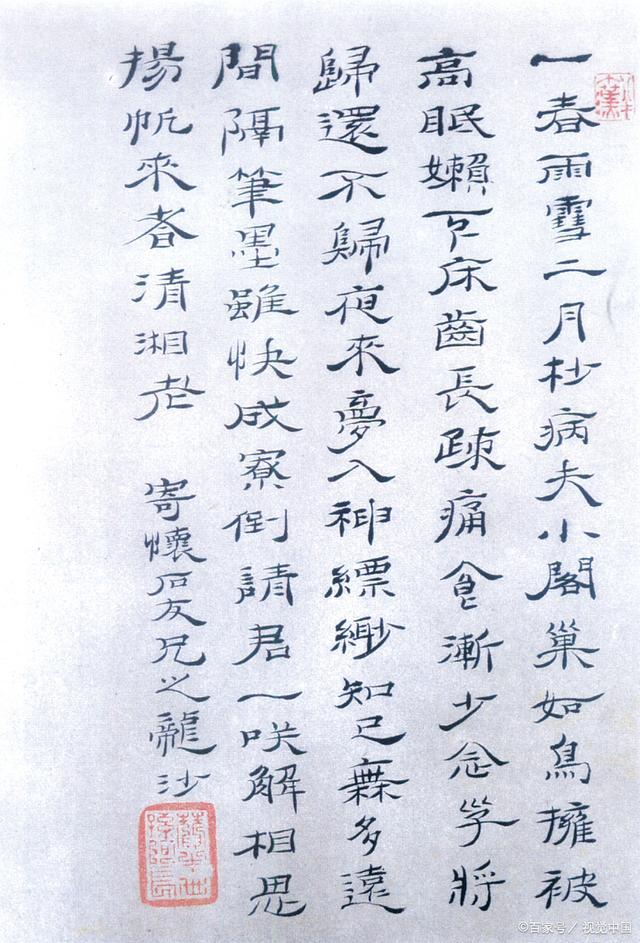 一春雨雪二月杪病夫小閣巢如鳥擁被
高眠嬾下床齒長疎痛食漸少念掌將
歸還不歸夜來夢入神縹緲知己無多遠
間隔筆墨雖快成寮倒請君一咲解相思
揚帆來者清湘老 寄懷石友兄之龍沙
©百家号/视觉中国